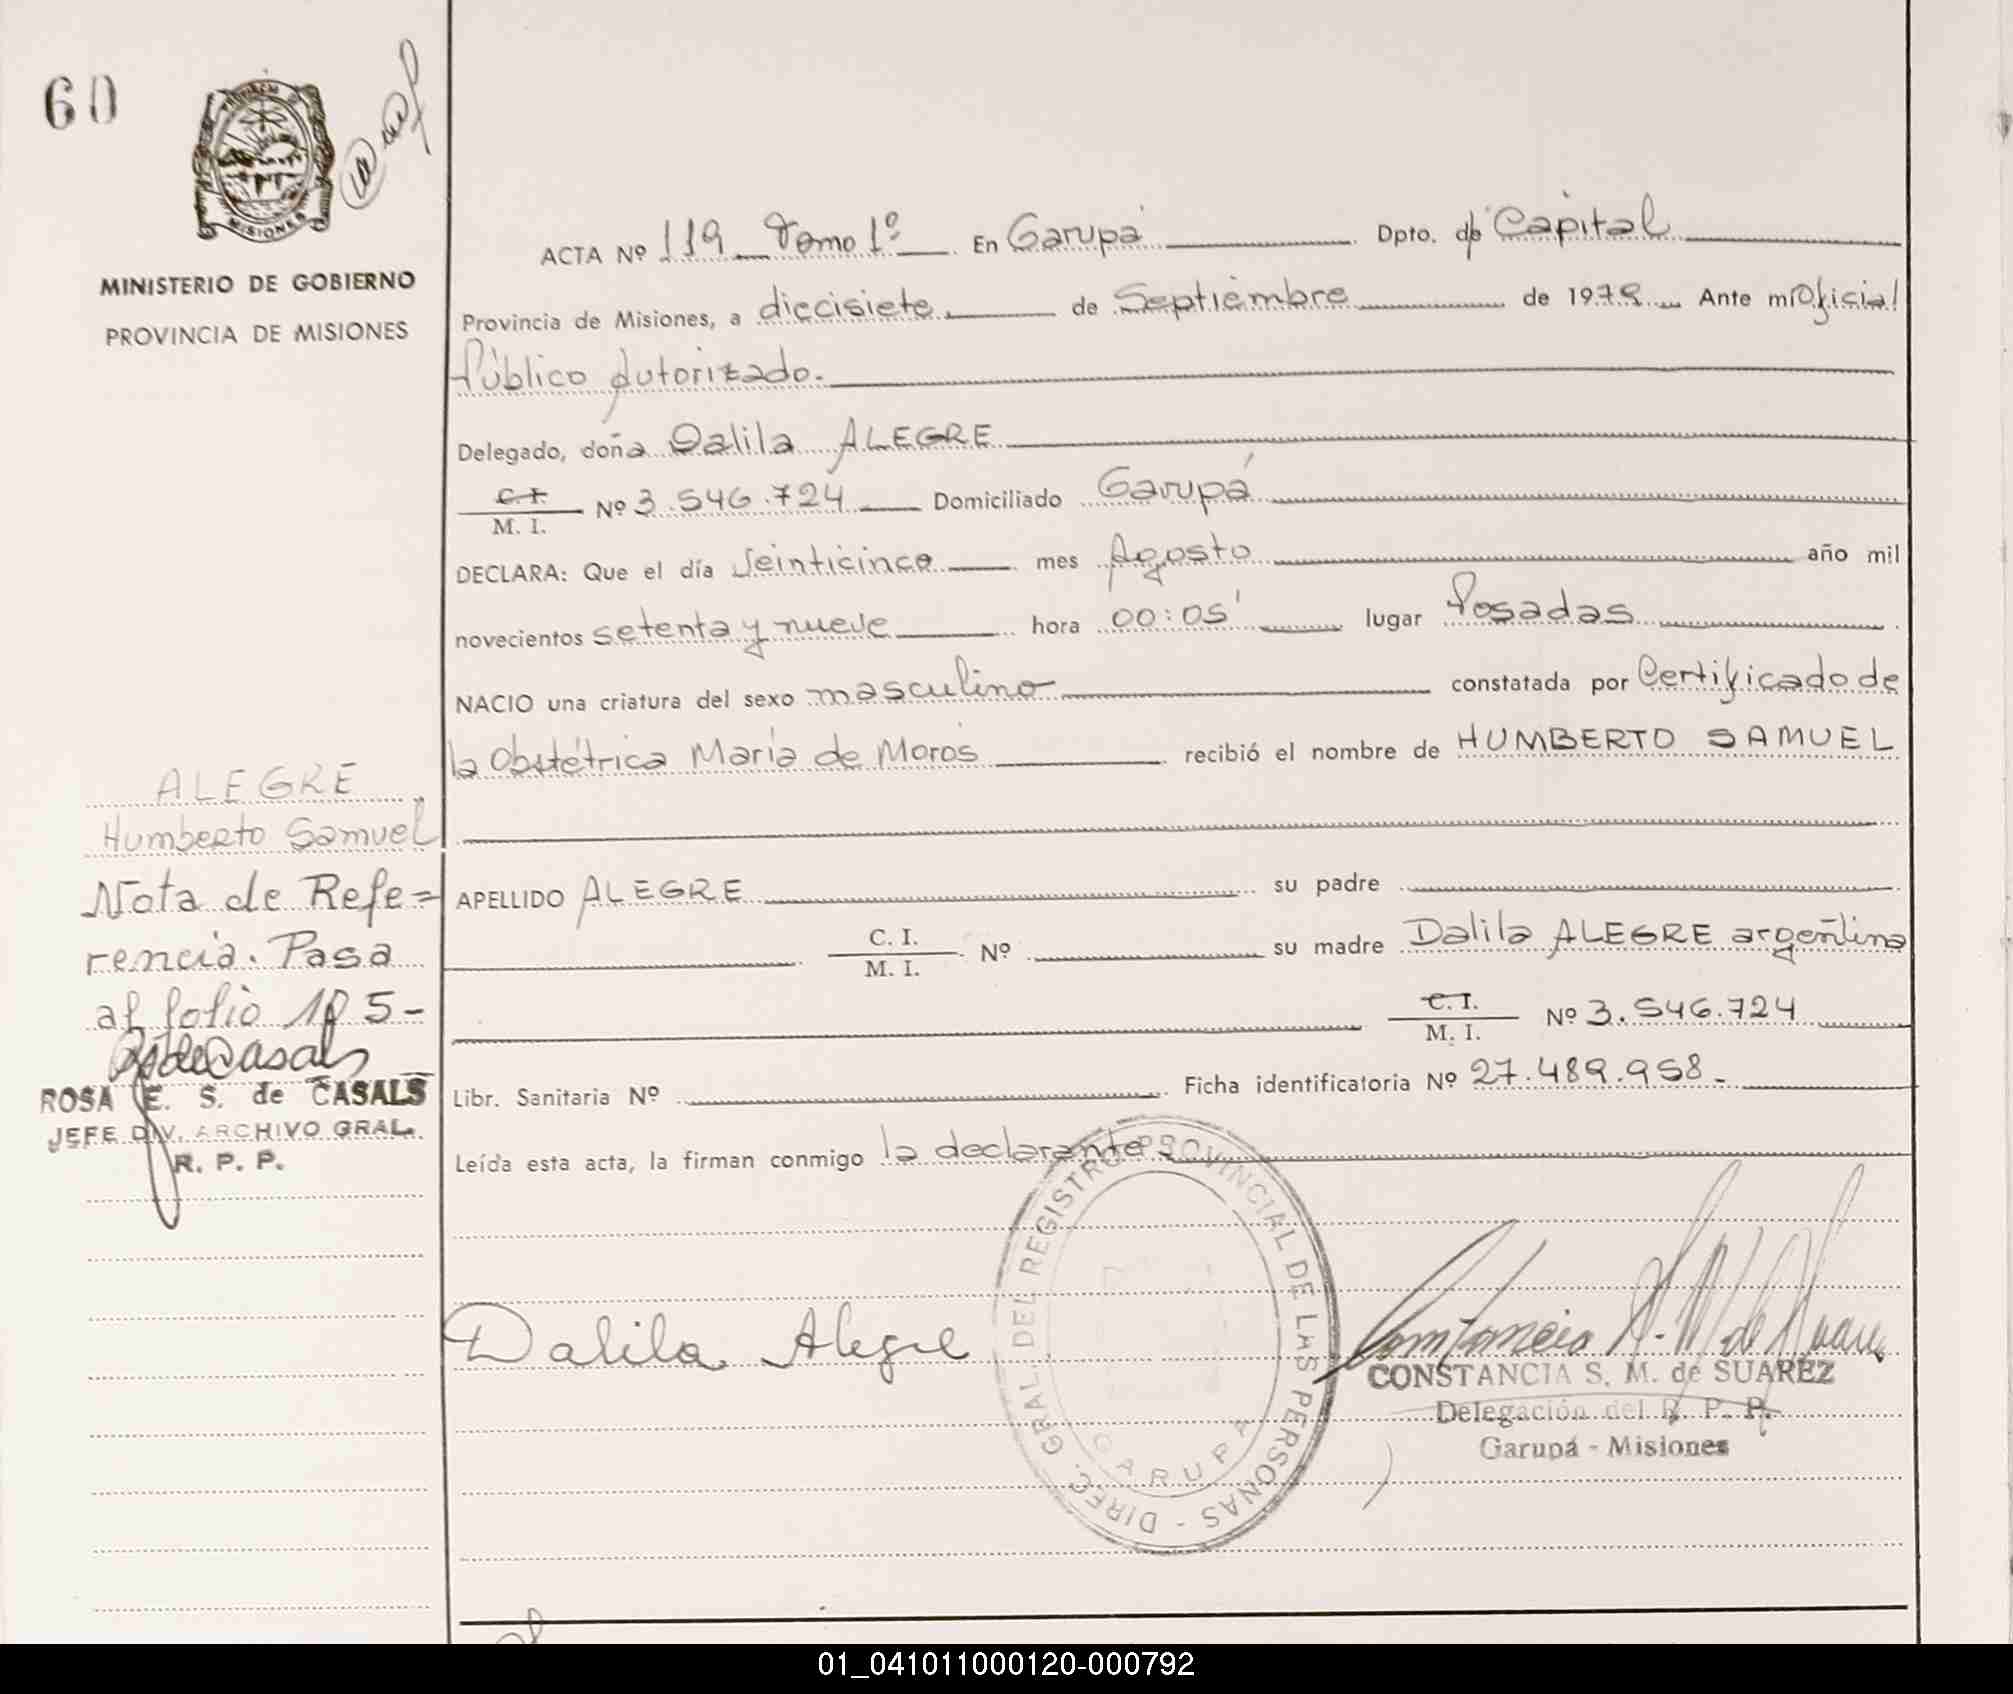 60
PROVINCIA DE
MISIONES
MINISTERIO DE GOBIERNO
PROVINCIA DE MISIONES
ACTA Nº 119 Tomo 1º En Garupá Dpto. de Capital
Provincia de Misiones, a diecisiete de Septiembre de 1979 Ante mi Oficial
Público Autorizado.
Delegado, doña Dalila ALEGRE
C. I.
M. I. Nº 3.546.724 Domiciliado Garupá
DECLARA: Que el día Veinticinco mes Agosto año mil
novecientos setenta y nueve hora 00:05' lugar Posadas
NACIO una criatura del sexo masculino constatada por Certificado de
la Obstétrica María de Moros recibió el nombre de HUMBERTO SAMUEL
ALEGRE
Humberto Samuel
Nota de Refe=
rencia. Pasa
al folio 105-
RSdeCasals
ROSA E. S. de CASALS
JEFE DIV. ARCHIVO GRAL.
R. P. P.
APELLIDO ALEGRE su padre
C. I.
M. I. Nº su madre Dalila ALEGRE argentina
C. I.
M. I. Nº 3.546.724
Libr. Sanitaria Nº Ficha identificatoria Nº 27.489.958-
Leída esta acta, la firman conmigo la declarante
DIREC. GRAL. DEL REGISTRO PROVINCIAL DE LAS PERSONAS -
GARUPA
Dalila Alegre
Constancia S. M de Suarez
CONSTANCIA S. M. de SUAREZ
Delegación del R. P. P.
Garupá - Misiones
01_041011000120-000792